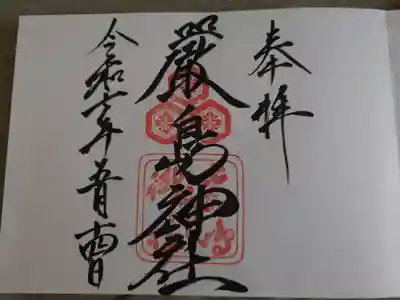 奉拝
嚴島神社
令和 年五月 日